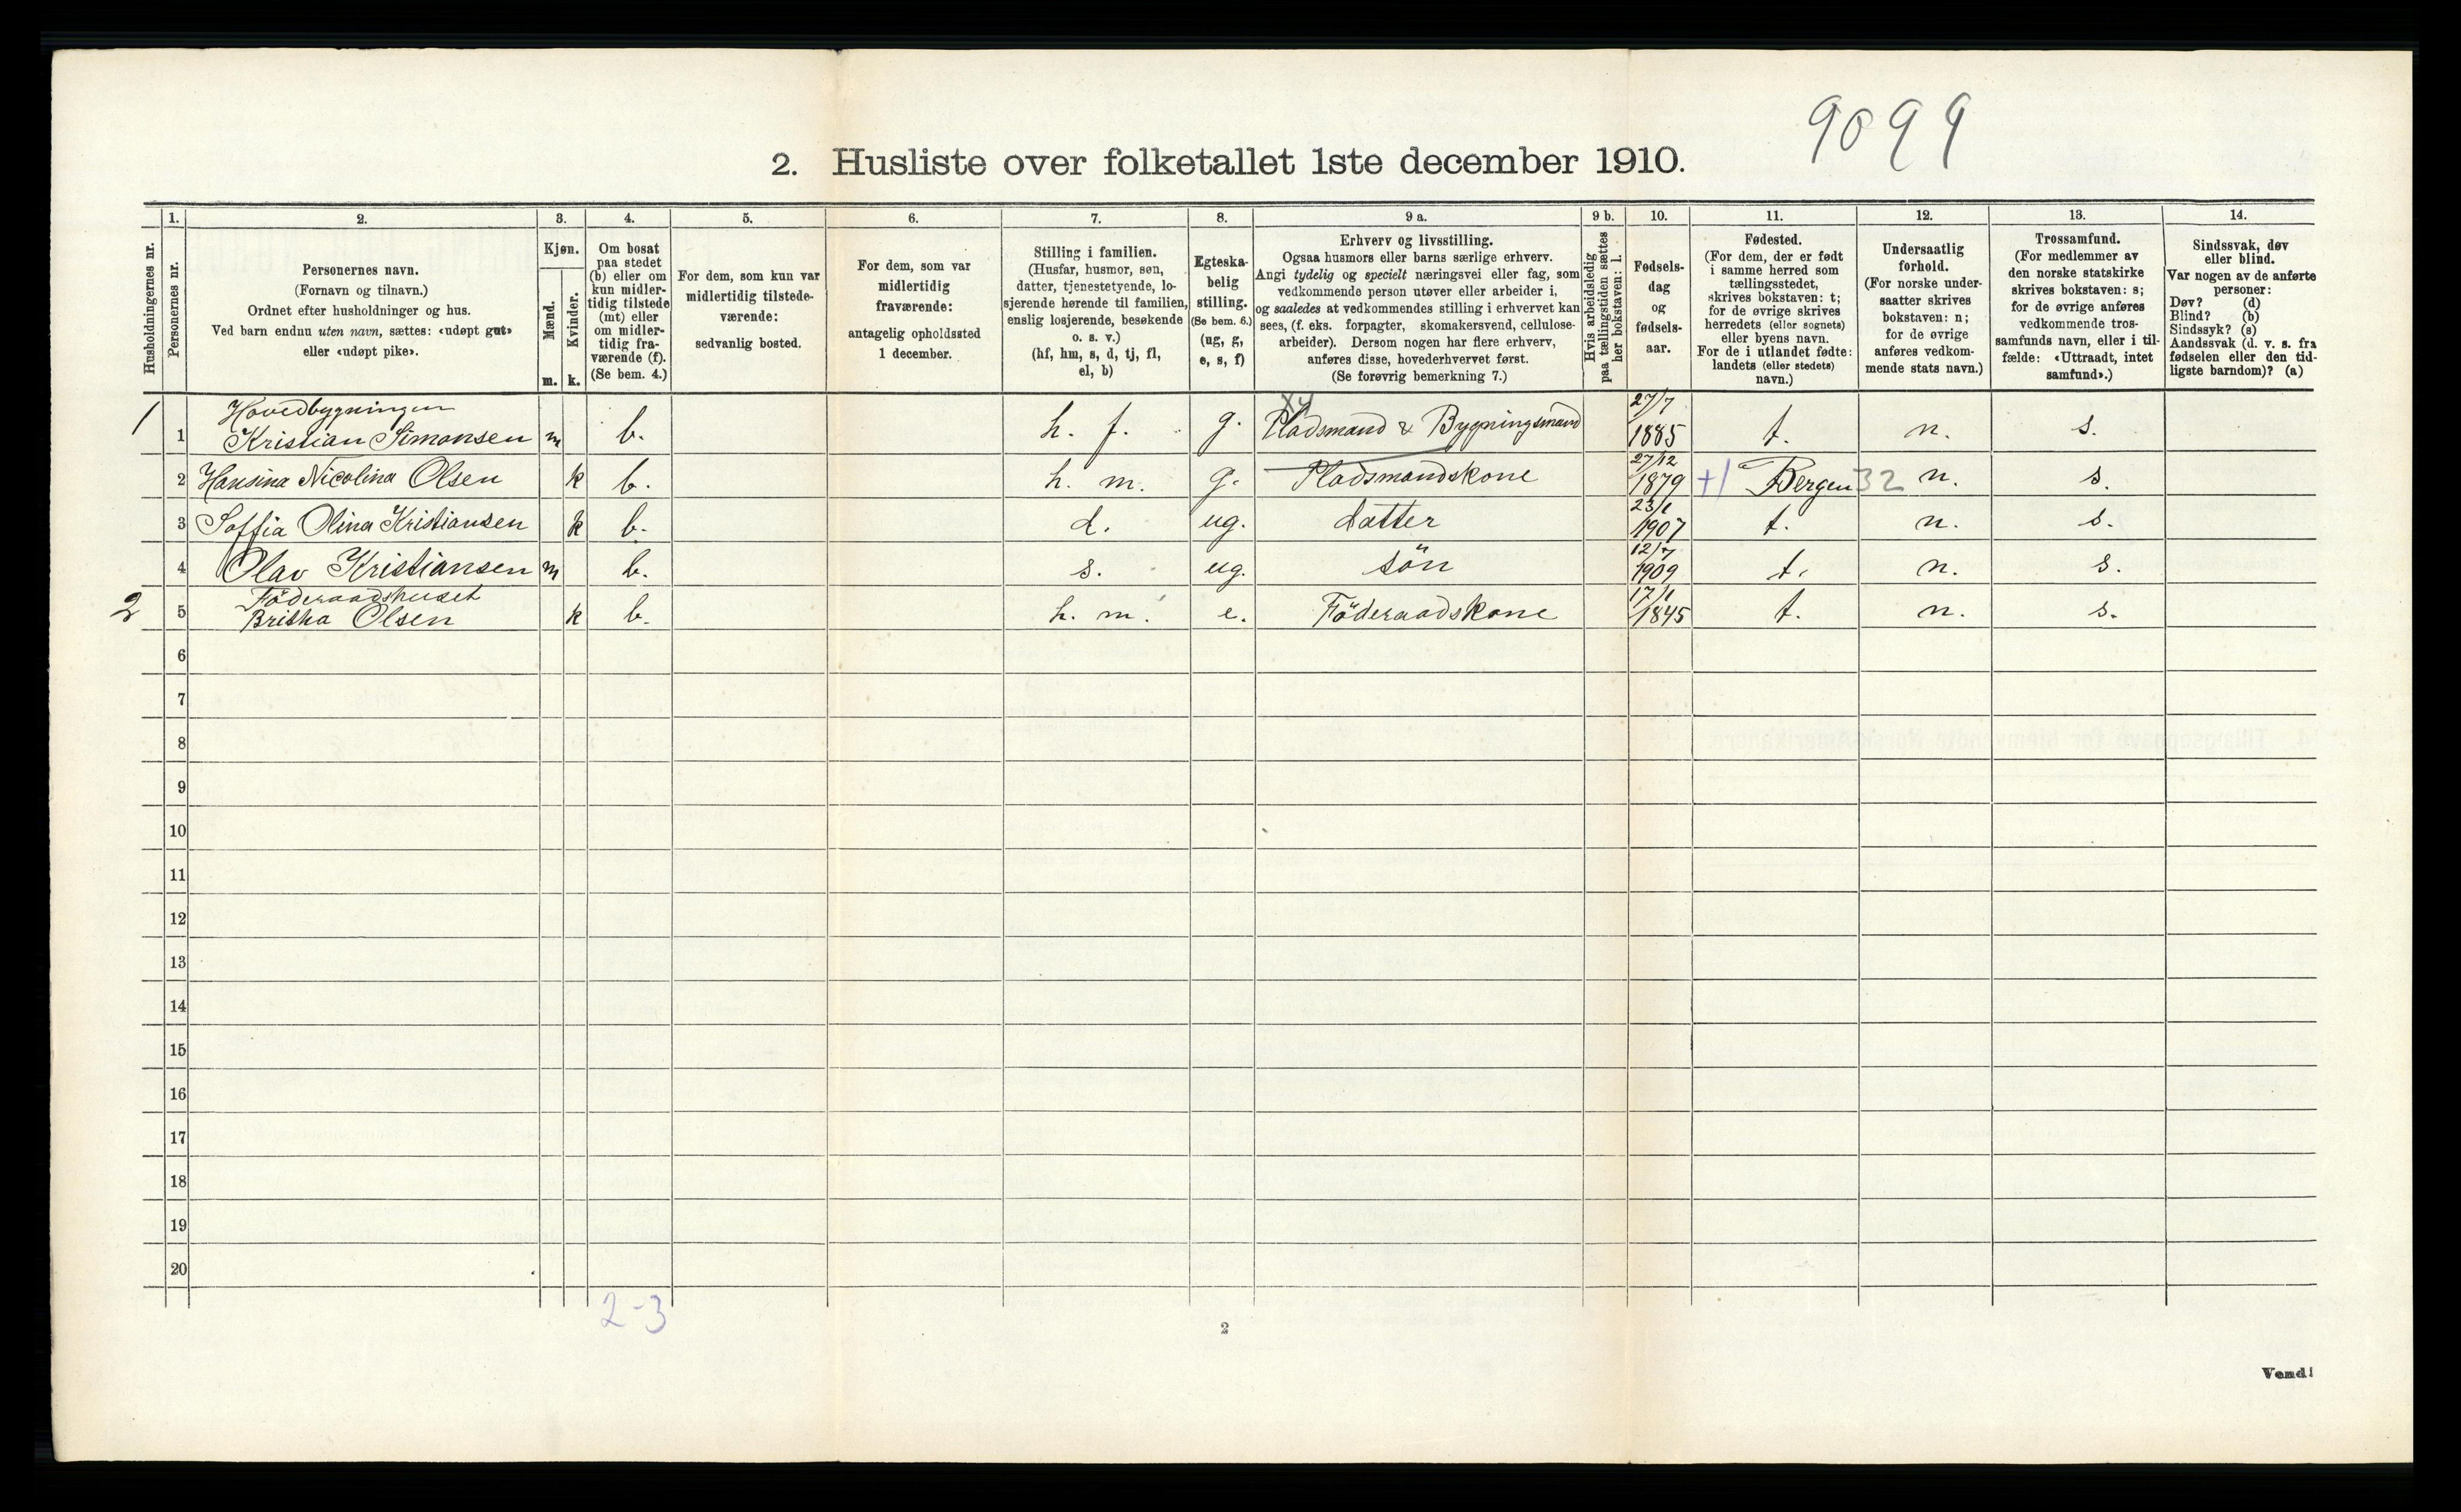 9099
2. Husliste over folketallet 1ste december 1910.
Husholdningernes nr.
1.
Personernes nr.
2.
Personernes navn.
(Fornavn og tilnavn.)
Ordnet efter husholdninger og hus.
Ved barn endnu uten navn, sættes: «udøpt gut»
eller «udøpt pike».
3.
Kjøn.
Mænd.
m.
Kvinder.
k.
4.
Om bosat
paa stedet
(b) eller om
kun midler-
tidig tilstede
(mt) eller
om midler-
tidig fra-
værende (f).
(Se bem. 4.)
5.
For dem, som kun var
midlertidig tilstede-
værende:
sedvanlig bosted.
6.
For dem, som var
midlertidig
fraværende:
antagelig opholdssted
1 december.
7.
Stilling i familien.
(Husfar, husmor, søn,
datter, tjenestetyende, lo-
sjerende hørende til familien,
enslig losjerende, besøkende
o. s. v.)
(hf, hm, s, d, tj, fl,
el, b)
8.
Egteska-
belig
stilling.
(Se bem. 6.)
(ug, g,
e, s, f)
9 a.
Erhverv og livsstilling.
Ogsaa husmors eller barns særlige erhverv.
Angi tydelig og specielt næringsvei eller fag, som
vedkommende person utøver eller arbeider i,
og saaledes at vedkommendes stilling i erhvervet kan
sees, (f. eks. forpagter, skomakersvend, cellulose-
arbeider). Dersom nogen har flere erhverv,
anføres disse, hovederhvervet først.
(Se forøvrig bemerkning 7.)
9 b.
Hvis arbeidsledig
paa tællingstiden sættes
her bokstaven: l.
10.
Fødsels-
dag
og
fødsels-
aar.
11.
Fødested.
(For dem, der er født
i samme herred som
tællingsstedet,
skrives bokstaven: t;
for de øvrige skrives
herredets (eller sognets)
eller byens navn.
For de i utlandet fødte:
landets (eller stedets)
navn.)
12.
Undersaatlig
forhold.
(For norske under-
saatter skrives
bokstaven: n;
for de øvrige
anføres vedkom-
mende stats navn.)
13.
Trossamfund.
(For medlemmer av
den norske statskirke
skrives bokstaven: s;
for de øvrige anføres
vedkommende tros-
samfunds navn, eller i til-
fælde: «Uttraadt, intet
samfund».)
14.
Sindssvak, døv
eller blind.
Var nogen av de anførte
personer:
Døv? (d)
Blind? (b)
Sindssyk? (s)
Aandssvak (d. v. s. fra
fødselen eller den tid-
ligste barndom)? (a)
Hovedbygningen
1 1 Kristian Simonsen m b. h. f. g. Pladsmand & Bygningsmand 27/7 1885 t. n. s.
2 Hansina Nicolina Olsen k b. h. m. g. Pladsmandskone 27/12 1879 +1 Bergen 32 n. s.
3 Soffia Olina Kristiansen k b. d. ug. datter 23/1 1907 t. n. s.
4 Olav Kristiansen m b. s. ug. sön 12/7 1909 t. n. s.
Föderaadshuset
2 5 Britha Olsen k b. h. m. e. Föderaadskone 17/1 1845 t. n. s.
6
7
8
9
10
11
12
13
14
15
16
17
18
19
20
2-3
2
Vend!